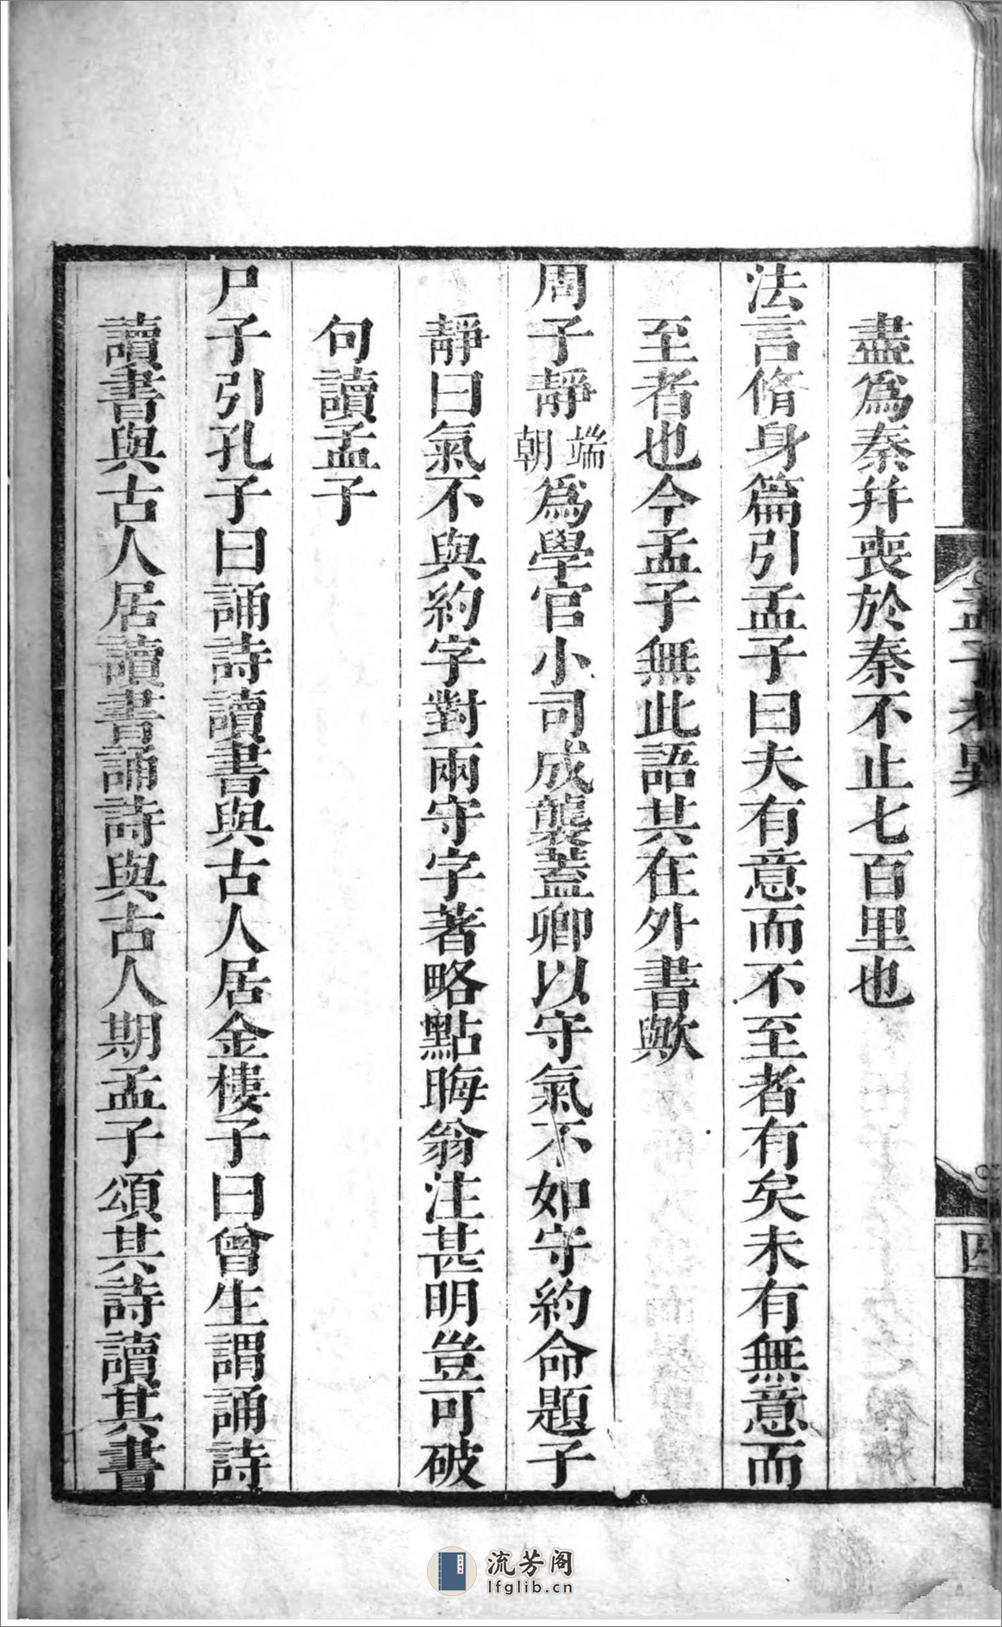 盡爲秦幷喪於秦不止七百里也
法言脩身篇引孟子曰夫有意而不至者有矣未有無意而
至者也今孟子無此語其在外書歟
周子靜端朝爲學官小司成襲蓋卿以守氣不如守約命題子
靜曰氣不與約字對兩守字著略點晦翁注甚明豈可破
句讀孟子
尸子引孔子曰誦詩讀書與古人居金樓子曰曾生謂誦詩
讀書與古人居讀書誦詩與古人期孟子頌其詩讀其書
孟子考異
四
流芳阁
lfglib.cn